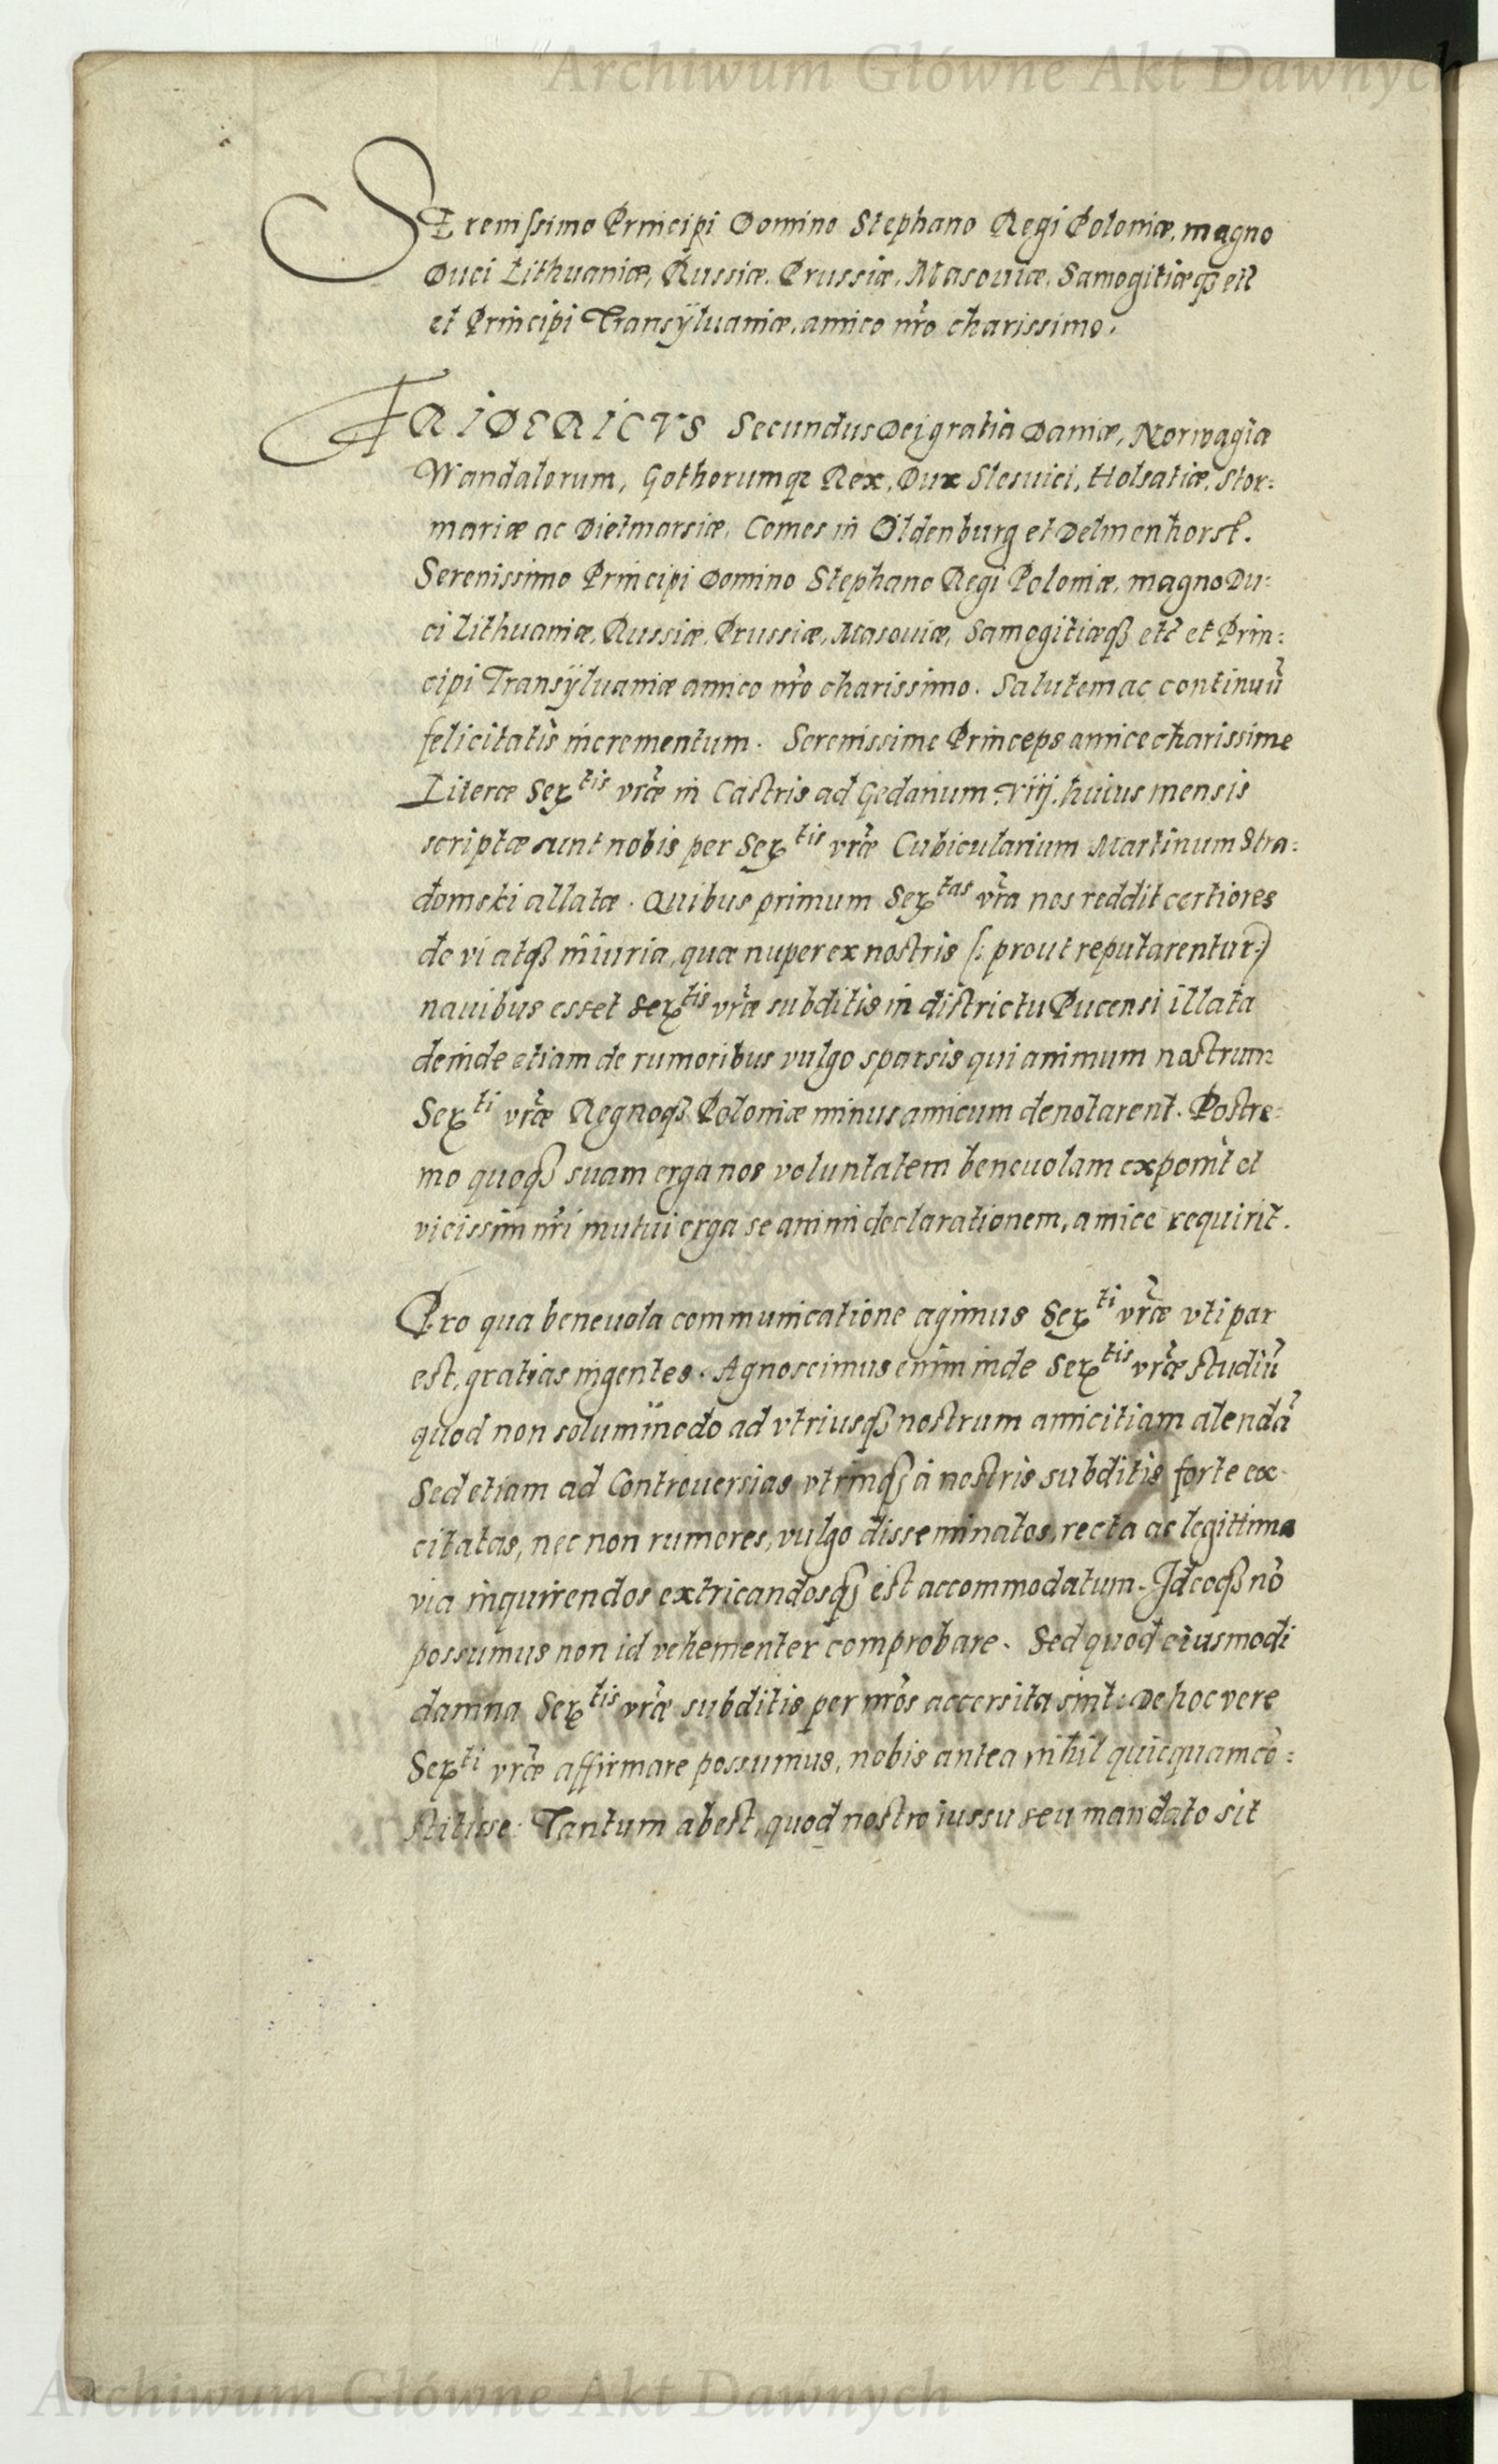 Archiwum Główne Akt Dawnych
SErenissimo Principi Domino Stephano Regi Poloniæ, magno
Duci Lithuaniæ, Russiæ, Prussiæ, Masouiæ, Samogitiæq₃ etc̃
et Principi Transÿluaniæ, amico nr̃o charissimo.
FRIDERICVS Secundus Dei gratia Daniæ, Norwagiæ
Wandalorum, Gothorumq₃ Rex, Dux Slesuici, Holsatiæ, Stor:
mariæ ac Dietmarsiæ, Comes in Oldenburg et Delmenhorst.
Serenissimo Principi Domino Stephano Regi Poloniæ, magno Du:
ci Lithuaniæ, Russiæ, Prussiæ, Masouiæ, Samogitiæq₃ etc̃ et Prin:
cipi Transÿluaniæ amico nr̃o charissimo. Salutem ac continuũ
felicitatis incrementum. Serenissime Princeps amice charissime
Literæ Serᵗⁱˢ vr̃æ in Castris ad Gedanum viij. huius mensis
scriptæ sunt nobis per Serᵗⁱˢ vr̃æ Cubicularium Martinum Stra:
domski allatæ. Quibus primum Serᵗᵃˢ vr̃a nos reddit certiores
de vi atq₃ iniuria, quæ nuper ex nostris (: prout reputarentur:)
nauibus esset Serᵗⁱˢ vr̃æ subditis in districtu Pucensi illata
deinde etiam de rumoribus vulgo sparsis qui animum nostrum
Serᵗⁱ vr̃æ Regnoq₃ Poloniæ minus amicum denotarent. Postre:
mo quoq₃ suam erga nos voluntatem beneuolam exponit et
vicissim nr̃i mutui erga se animi declarationem, amice requirit.
Pro qua beneuola communicatione agimus Serᵗⁱ vr̃æ vti par
est, gratias ingentes. Agnoscimus enim inde Serᵗⁱˢ vr̃æ studiũ
quod non solummodo ad vtriusq₃ nostrum amicitiam alendã
Sed etiam ad Controuersias vtrinq₃ à nostris subditis forte ex:
citatas, nec non rumores, vulgo disseminatos, recta ac legittima
via inquirendos extricandosq₃ est accommodatum. Ideoq₃ nõ
possumus non id vehementer comprobare. Sed quod eiusmodi
damna Serᵗⁱˢ vr̃æ subditis per nr̃os accersita sint: De hoc vere
Serᵗⁱ vr̃æ affirmare possumus, nobis antea nihil quicquam cõ:
stitisse: Tantum abest, quod nostro iussu seu mandato sit
Archiwum Główne Akt Dawnych